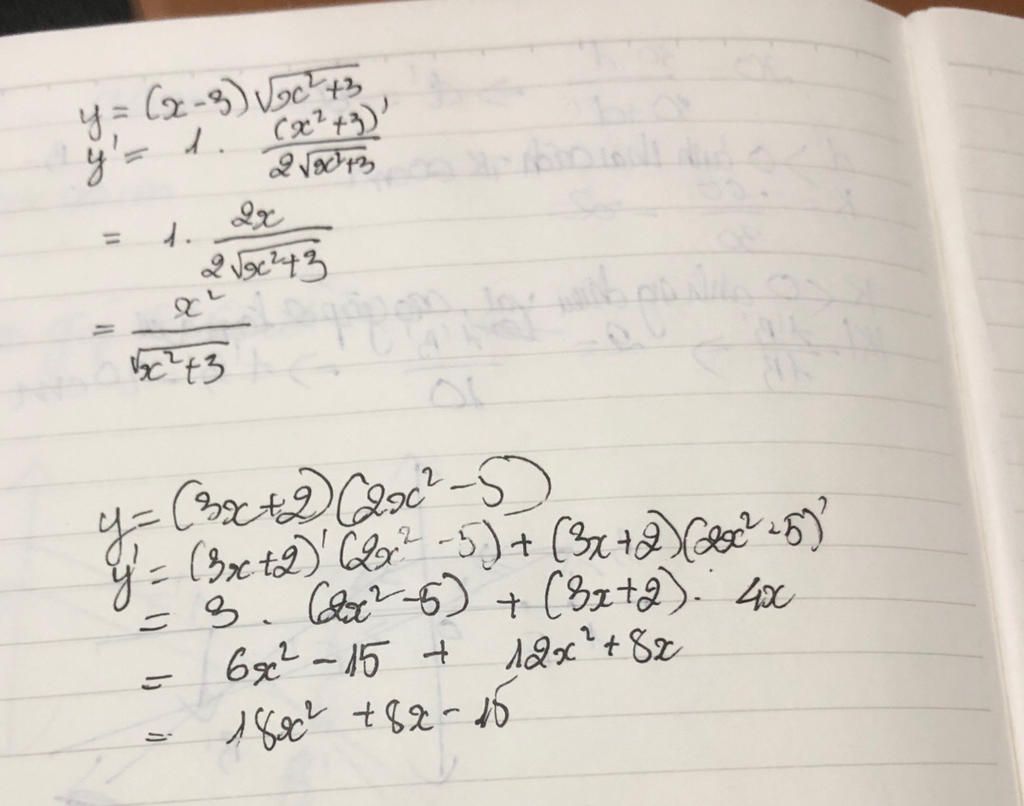 y = (x-3)√(x²+3)
y' = 1 . (x²+3)' / 2√(x²+3)
= 1 . 2x / 2√(x²+3)
= x² / √(x²+3)
y = (3x+2)(2x²-5)
y' = (3x+2)'(2x²-5) + (3x+2)(2x²-5)'
= 3 . (2x²-5) + (3x+2) . 4x
= 6x² - 15 + 12x² + 8x
= 18x² + 8x - 15